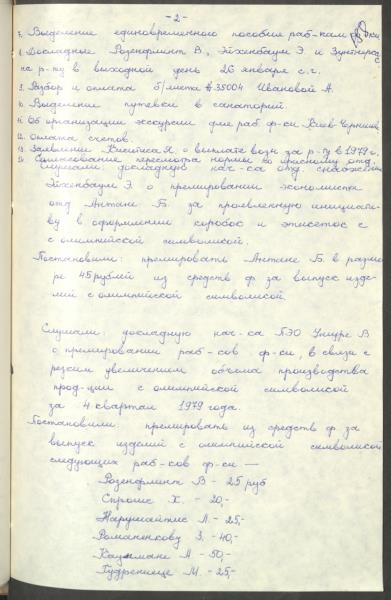 -2-
7. Выделение единовременного пособия раб-кам ф-ки
8. Докладное Розенфминт В, Эйхенбаум Э. и
на р-ту в выходной день 26 января с.г.
9. Разбор и оплата б/листа № 35004 Ивановой А.
10. Выделение путевки в санаторий
11. Об организации экскурсии для раб. ф-ки Киев-Чернигов
12. Оплата счетов.
13. Заявлении Я. о выплате возн. за р-ту в 1979 г.
14. Согласование пересмотра нормы по красному отд.
Слушали: докладную нач-ка отд. снабжения
Эйхенбаум Э. о премировании экономиста
отд Антане Б. за проявленную инициати-
ву в оформлении коробок и этикеток с
с олимпийской символикой.
Постановили: премировать Антане Б. в разме-
ре 45 рублей из средств ф. за выпуск изде-
лий с олимпийской символикой.
Слушали: докладную нач-ка ПЭО Умуре В
о премировании раб-ков ф-ки, в связи с
резким увеличением объема производства
прод-ции с олимпийской символикой
за 4 квартал 1979 года.
Постановили: премировать из средств ф. за
выпуск изделий с олимпийской символикой
следующих раб-ков ф-ки —
Розенфминт В - 25 руб
Спрогис Х. - 20,-
Нарушайтис Л. - 25,-
Романенкову З. - 40,-
Каулмане А - 50,-
Гудрениеце М. - 25,-